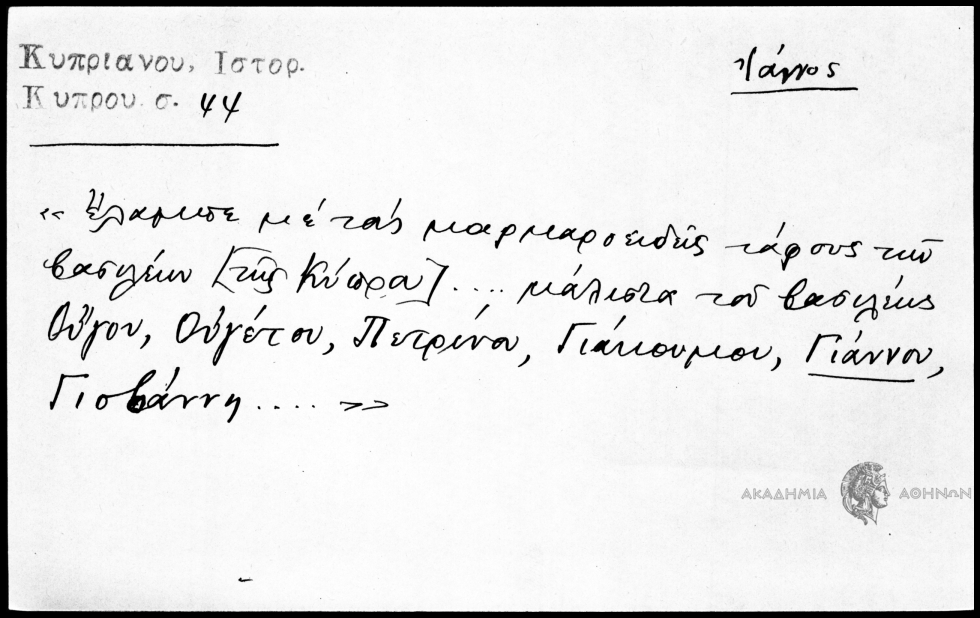 Κυπριανου, Ιστορ.
Κυπρου σ. 44
Γιάννος
« Ἔλαμπε μὲ τοὺς μαρμαροειδεῖς τάφους τῶν
βασιλέων [τῆς Κύπρου] .... μάλιστα τοῦ βασιλέως
Οὕγου, Οὑγέτου, Πετρίνου, Γιάκουμου, Γιάννου,
Γιοβάννη .... »
ΑΚΑΔΗΜΙΑ ΑΘΗΝΩΝ